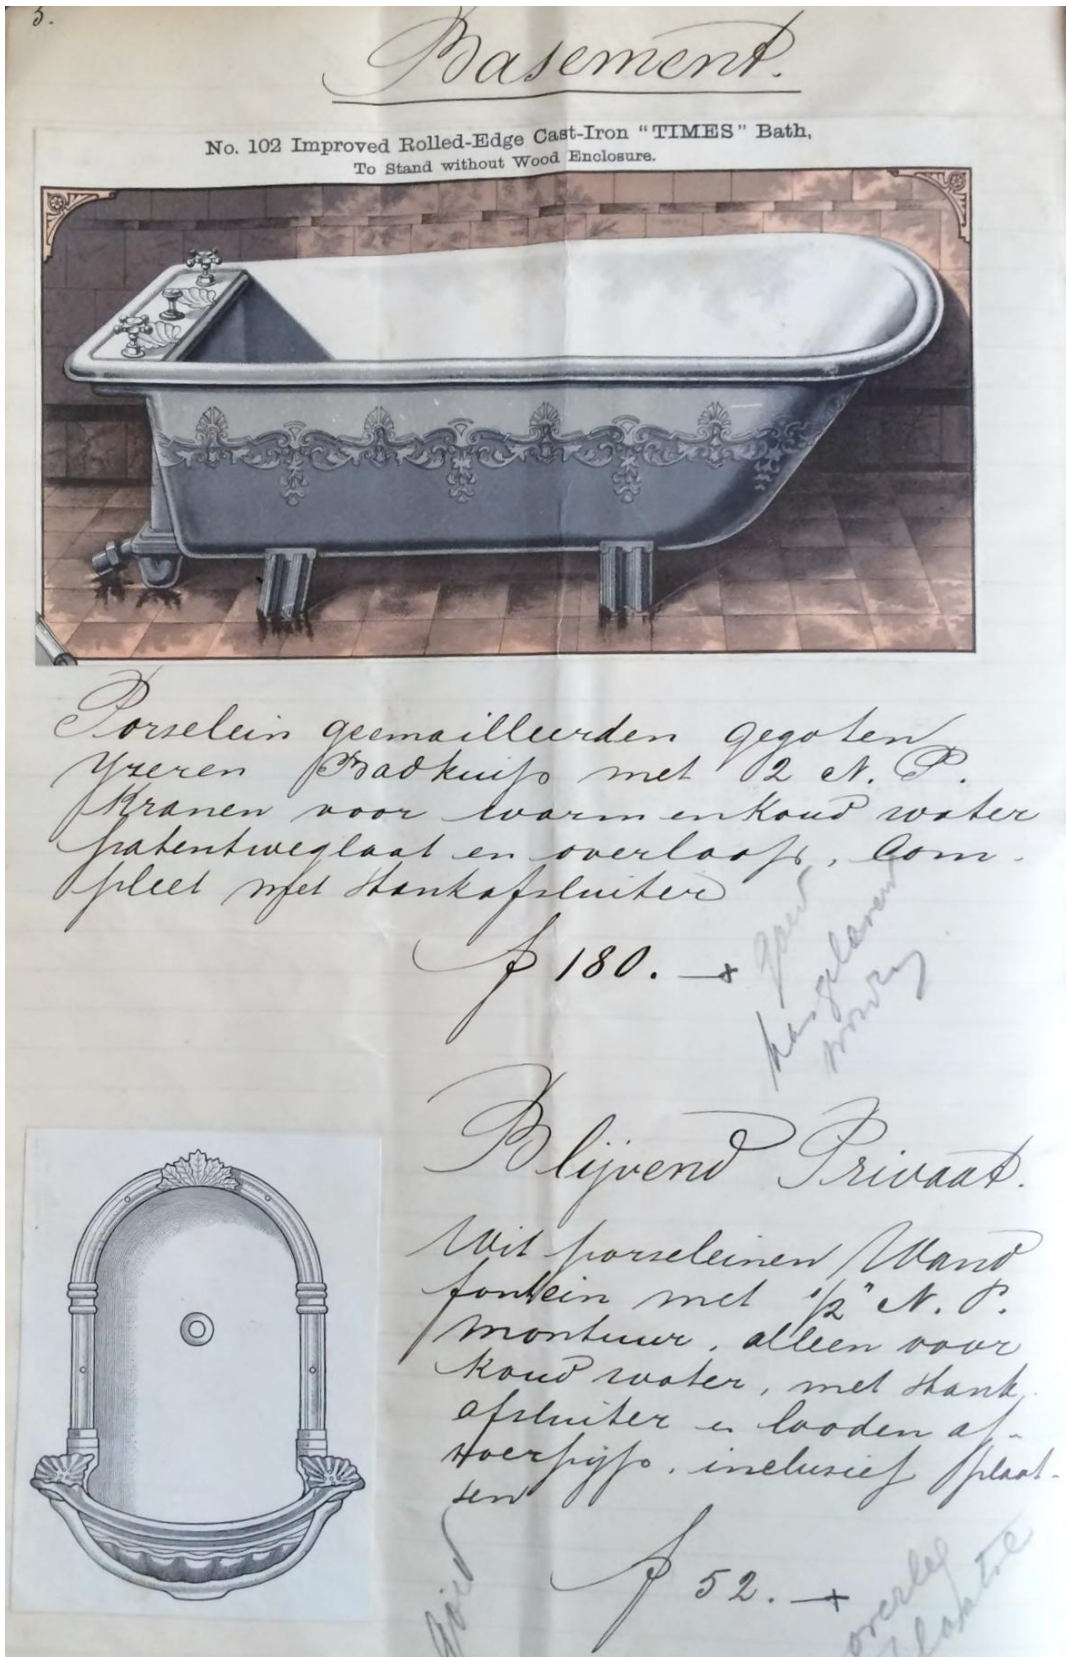 5.
Basement.
No. 102 Improved Rolled-Edge Cast-Iron "TIMES" Bath,
To Stand without Wood Enclosure.
Porselein geemailleerden gegoten
Yzeren Badkuip met 2 N. P.
Kranen voor warm en Koud water
patentweglaat en overloop, Com-
pleet met Stankafsluiter
f 180. —
goed
worden
Blijvend Privaat.
Wit porseleinen Wand
fontein met 1/2" N. P.
montuur, alleen voor
Koud water, met Stank,
afsluiter en looden af-
voerpijp, inclusief plaat-
sen
f 52. —
Goed
overleg